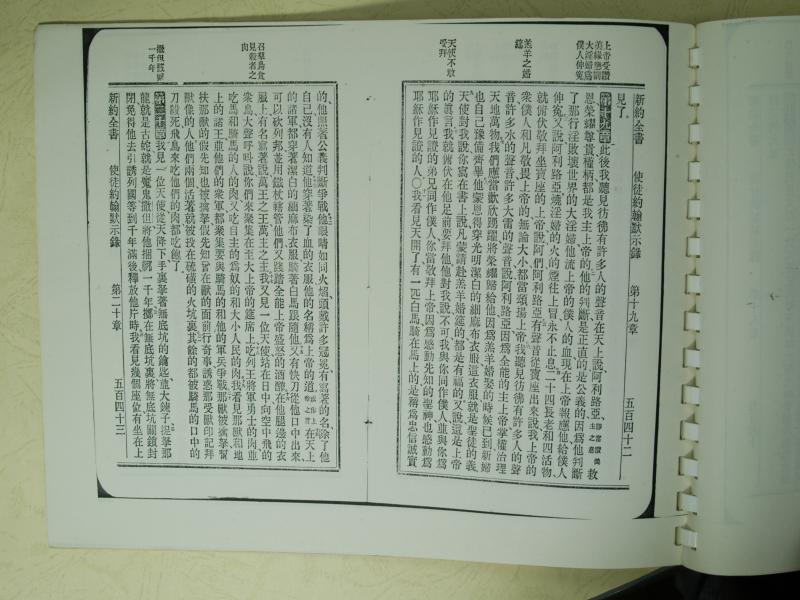 上帝受讚
美緣懲罰
大淫婦爲
僕人伸寃
羔羊之婚
筵
天使不敢
受拜
新約全書 使徒約翰默示錄 第十九章 五百四十二
見了
第十九章此後我聽見彷彿有許多人的聲音在天上說阿利路亞卽當讚美主之意救
恩榮耀尊貴權柄都是我主上帝的他的判斷是正直的是公義的因爲他判斷
了那行淫敗壞世界的大淫婦他流上帝的僕人的血現在上帝報應他給僕人
伸寃又說阿利路亞燒淫婦的火的煙往上冒永不止息二十四長老和四活物
就俯伏敬拜坐寶座的上帝說阿們阿利路亞有聲音從寶座出來說我上帝的
衆僕人和凡敬畏上帝的無論大小都當頌揚上帝我聽見彷彿有許多人的聲
音許多水的聲音許多大雷的聲音說阿利路亞因爲全能的主上帝掌權治理
天地萬物我們應當歡欣踴躍將榮耀歸給他因爲羔羊婚娶的時候已到新婦
也自已豫備齊畢他蒙恩得穿光明潔白的細麻布衣服這衣服就是聖徒的義
天使對我說你寫在書上說凡蒙請赴羔羊婚筵的都是有福的又說這是上帝
的眞言我就俯伏在他足前要拜他他對我說不可我與你同作僕人並與你爲
耶穌作見證的弟兄同作僕人你當敬拜上帝因爲感動先知的聖神也感動爲
耶穌作見證的人〇我看見天開了有一匹白馬騎在馬上的是稱爲忠信誠實
召羣鳥食
見殺者之
肉
撒但被囚
一千年
的他照著公義判斷爭戰他眼睛如同火焰頭戴許多冠冕有寫著的名除了他
自己沒有人知道他穿著染了血的衣服他的名稱爲上帝的道在天上
的諸軍都穿著潔白的細麻布衣服騎著白馬跟隨他又有快刀從他口中出來
可以砍列邦並用鐵杖轄管他們又踐踏全能上帝盛怒的酒醡在他腿邊的衣
服上有名寫著說萬王之王萬主之主我又見一位天使站在日中向空中飛的
衆鳥大聲呼呌說你們來聚集在至大上帝的筵席上吃列王將軍勇士的肉並
吃馬和騎馬的人的肉又吃自主的爲奴的和大小人民的肉我看見那獸和地
上的諸王並他們的衆軍都聚集要與騎馬的和他的軍兵爭戰那獸被擒拏幫
扶那獸的假先知也被擒拏假先知曾在獸的面前行奇事誘惑那受獸印記拜
獸像的人他們兩個活著就被投在硫磺的火坑裏其餘的都被騎馬的口中的
刀殺死飛鳥來吃他們的肉都吃飽了
第二十章我見一位天使從天降下手裏拏著無底坑的鑰匙並大鍊子捉拏那
龍就是古蛇就是魔鬼撒但將他捆綁一千年擲在無底坑裏將無底坑關鎖封
閉免得他去引誘列國等到千年滿後釋放他片時我看見幾個座位有坐在上
新約全書 使徒約翰默示錄 第二十章 五百四十三